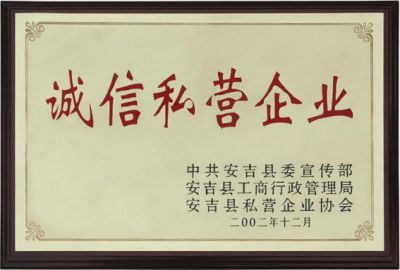 诚信私营企业
中共安吉县委宣传部
安吉县工商行政管理局
安吉县私营企业协会
二00二年十二月